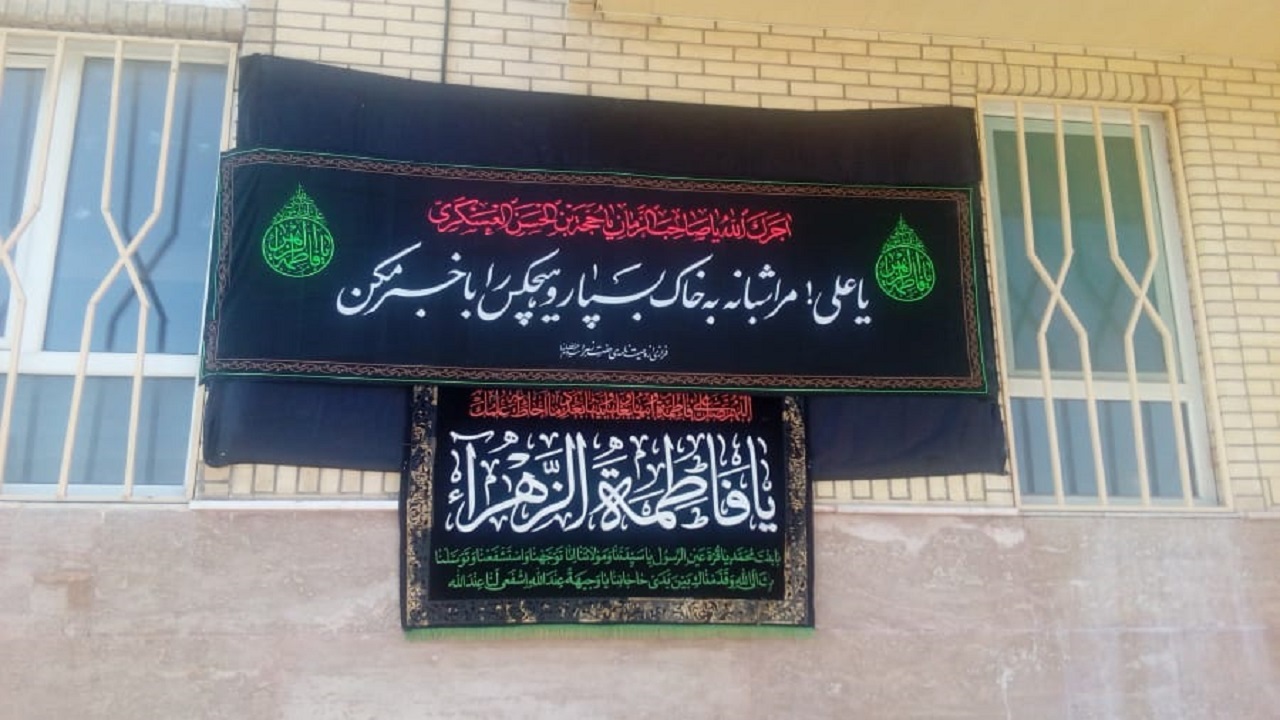 اجرک الله یا صاحب الزمان یا حجة بن الحسن العسکری
یا فاطمة الزهرا
یا فاطمة الزهرا
یا علی! مرا شبانه به خاک بسپار و هیچکس را با خبر مکن
فرازی از وصیت نامه‌ی حضرت زهرا
اللهم صل علی فاطمة و ابیها و بعلها و بنیها بعدد ما احاط به علمک
یا فاطِمَةُ الزَّهْرآء
یا بنت محمد یا قرة عین الرسول یا سیدتنا و مولاتنا انا توجهنا و استشفعنا و توسلنا
بک الی الله و قدمناک بین یدی حاجاتنا یا وجیهة عند الله اشفعی لنا عند الله